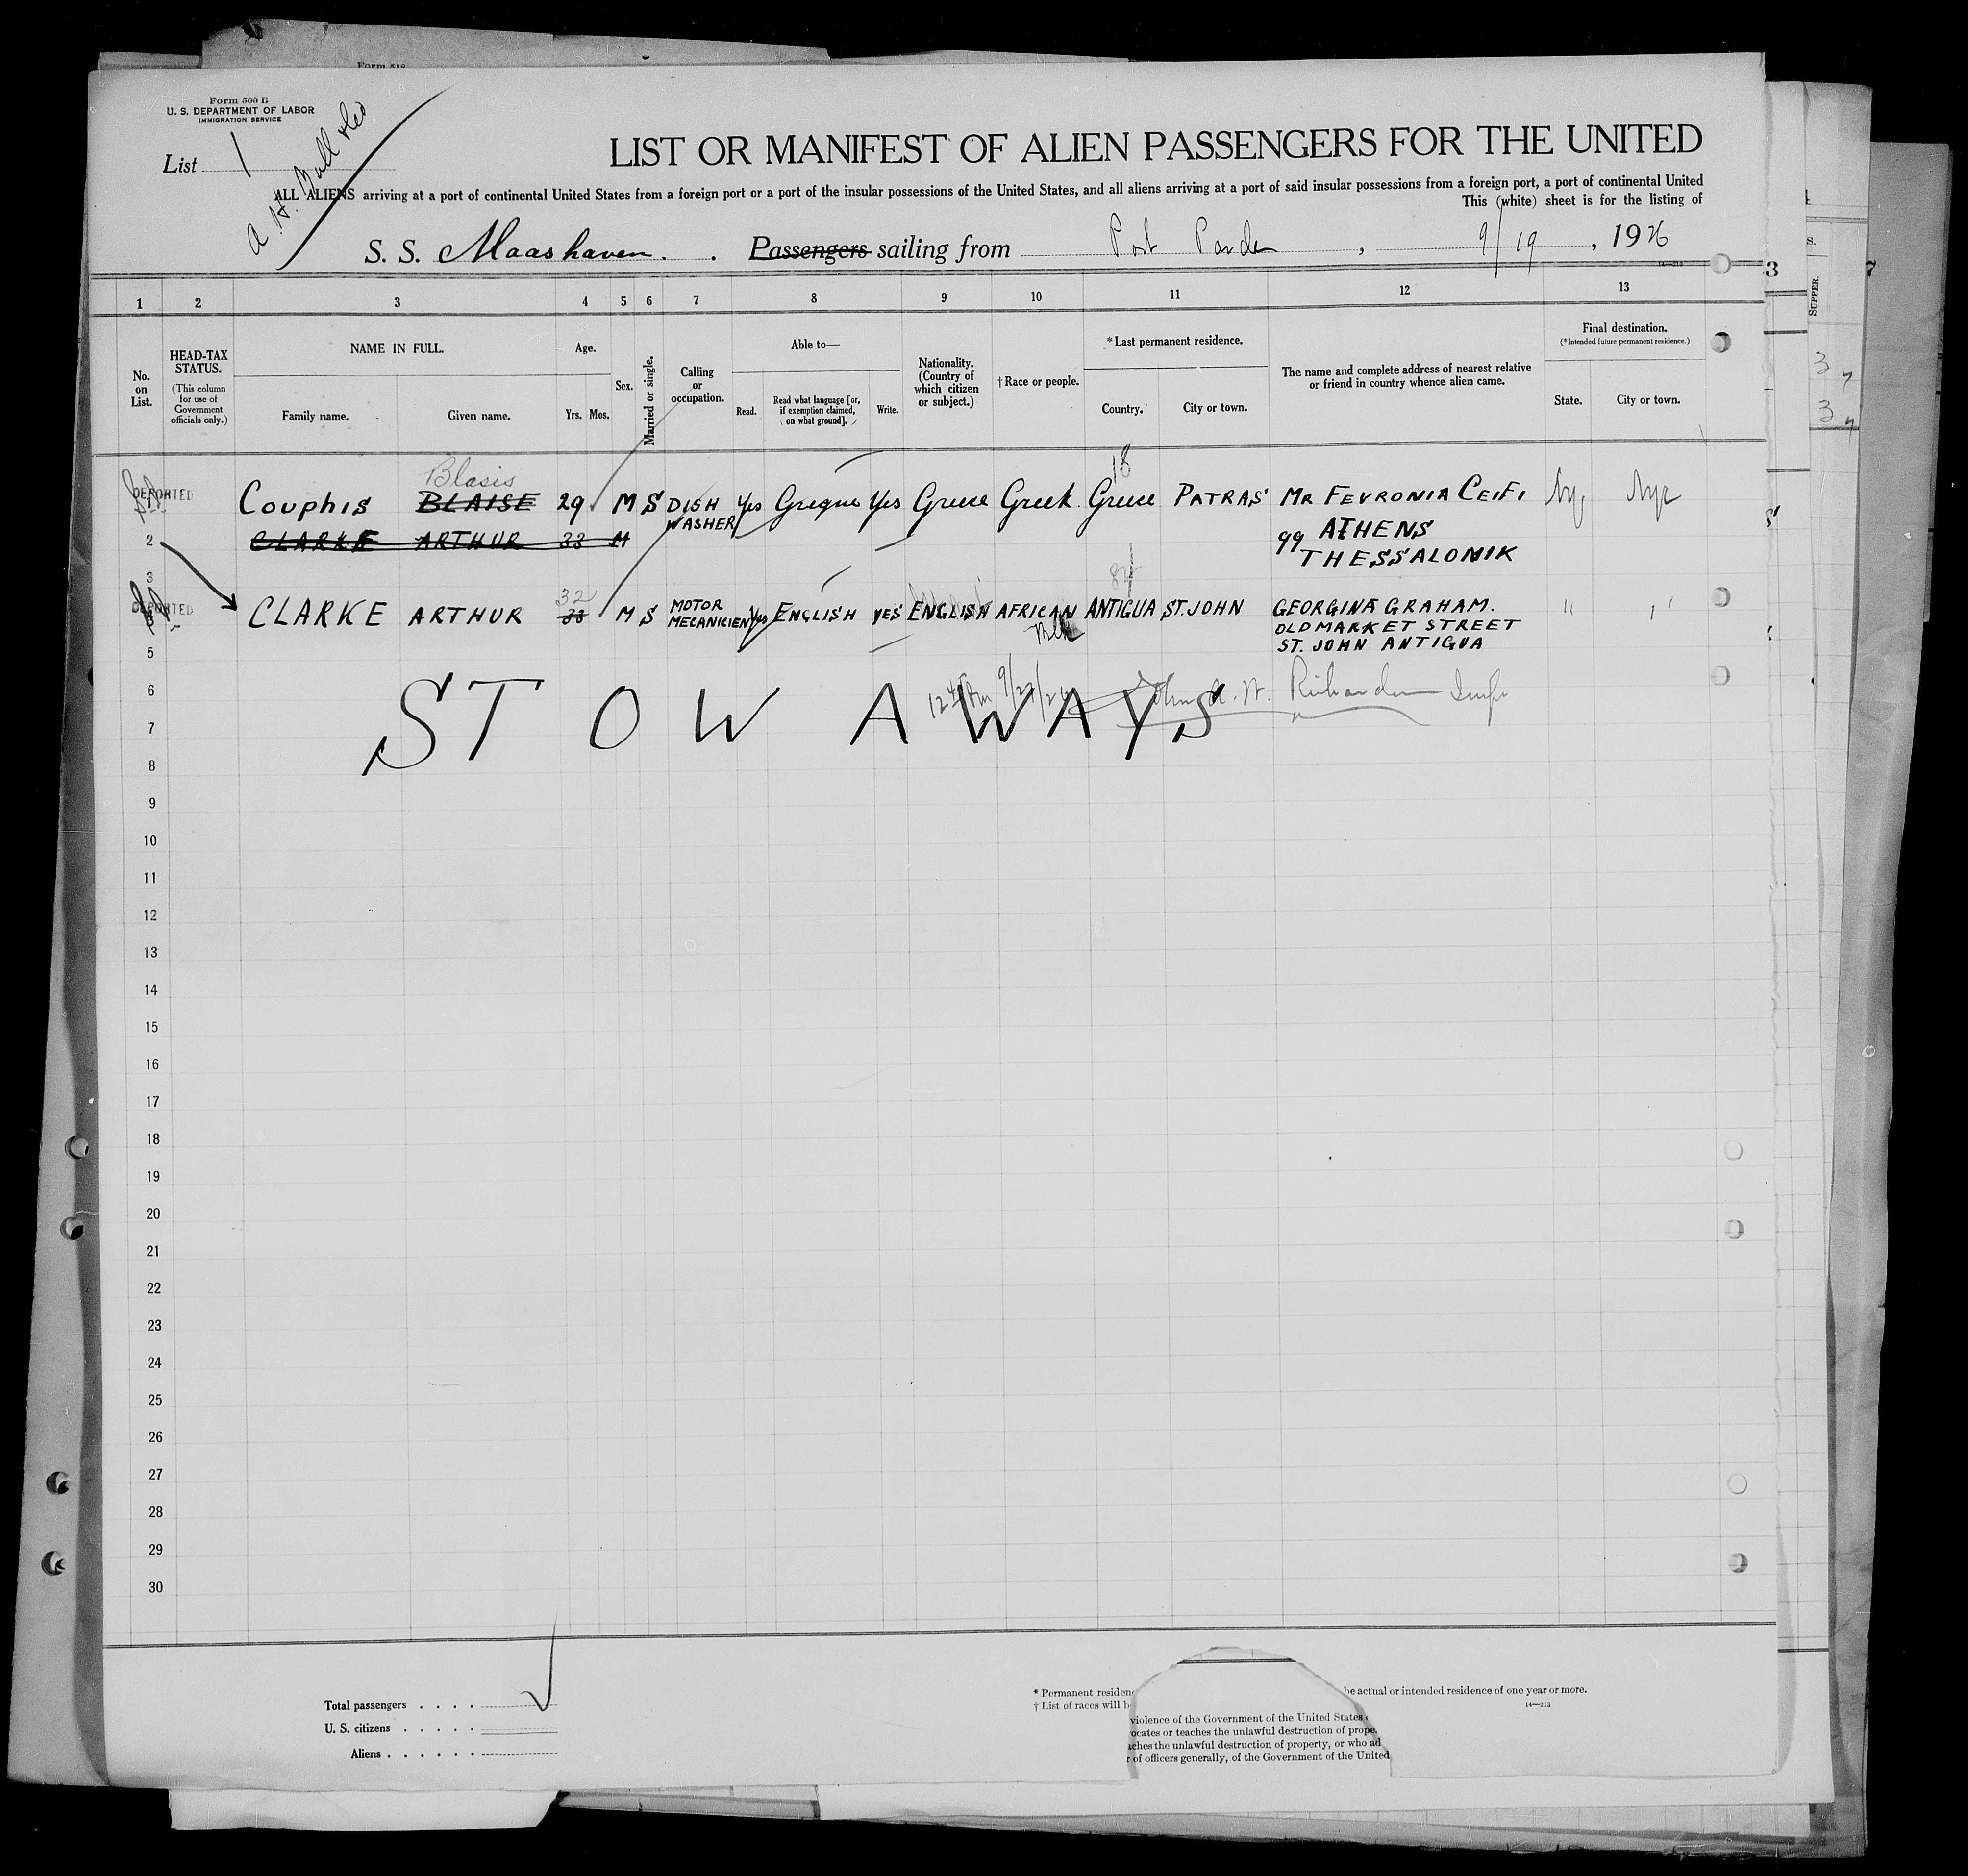 Form 500 B
U. S. DEPARTMENT OF LABOR
IMMIGRATION SERVICE
List 1
LIST OR MANIFEST OF ALIEN PASSENGERS FOR THE UNITED
ALL ALIENS arriving at a port of continental United States from a foreign port or a port of the insular possessions of the United States, and all aliens arriving at a port of said insular possessions from a foreign port, a port of continental United
This (white) sheet is for the listing of
S. S. Maashaven. Passengers sailing from Port 9/19, 1926
1 2 3 4 5 6 7 8 9 10 11 12 13
No. on List.
HEAD-TAX STATUS.
(This column for use of Government officials only.)
NAME IN FULL.
Family name. Given name.
Age.
Yrs. Mos.
Sex.
Married or single.
Calling or occupation.
Able to—
Read. Read what language [or, if exemption claimed, on what ground]. Write.
Nationality. (Country of which citizen or subject.)
† Race or people.
* Last permanent residence.
Country. City or town.
The name and complete address of nearest relative or friend in country whence alien came.
Final destination.
(* Intended future permanent residence.)
State. City or town.
18
Blasis
DEPORTED 1 Couphis BLAISE 29 M S DISH WASHER Yes Greque Yes Greece Greek Greece PATRAS MR FEVRONIA CEIFI NY NYC
99 ATHENS
THESSALONIK
2 CLARKE ARTHUR 33 M
3
32
DEPORTED CLARKE ARTHUR 33 M S MOTOR MECANICIEN Yes ENGLISH YES ENGLISH AFRICAN Blk ANTIGUA ST. JOHN GEORGINA GRAHAM. " "
OLD MARKET STREET
ST. JOHN ANTIGUA
5
6
STOWAWAYS
7
8
9
10
11
12
13
14
15
16
17
18
19
20
21
22
23
24
25
26
27
28
29
30
Total passengers
U. S. citizens
Aliens
* Permanent residen
be actual or intended residence of one year or more.
† List of races will b
14—213
violence of the Government of the United States
ocates or teaches the unlawful destruction of prope
aches the unlawful destruction of property, or who ad
r of officers generally, of the Government of the United